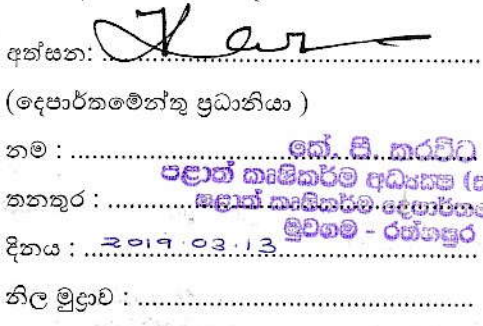 අත්සන:
(දෙපාර්තමේන්තු ප්‍රධානියා )
නම : කේ. පී. කරවිට
පළාත් කෘෂිකර්ම අධ්‍යක්ෂ
තනතුර : පළාත් කෘෂිකර්ම
මුවගම - රත්නපුර
දිනය : 2019.03.13
නිල මුද්‍රාව :